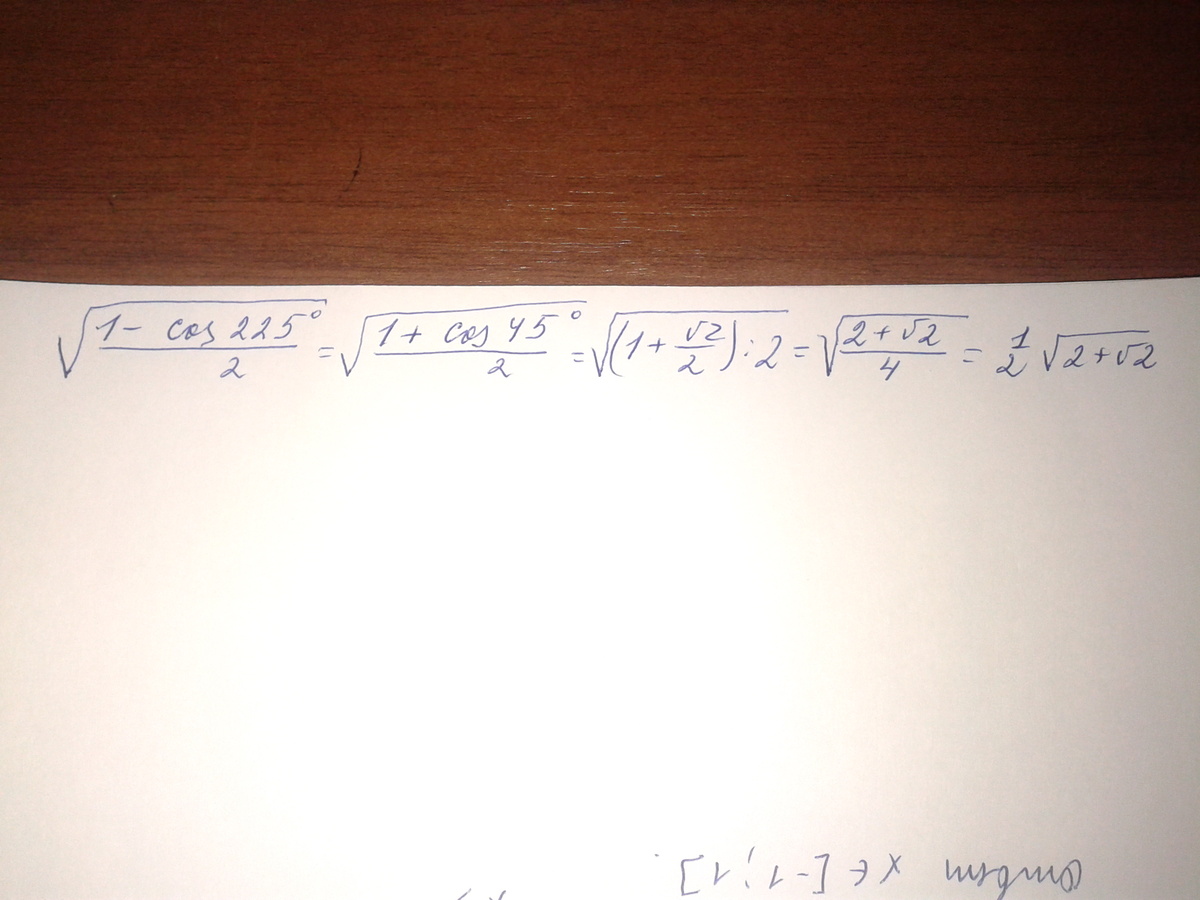 √((1 - cos 225°)/2) = √((1 + cos 45°)/2) = √((1 + √2/2) : 2) = √((2 + √2)/4) = 1/2 √(2 + √2)
Ответ x ∈ [-1; 1]